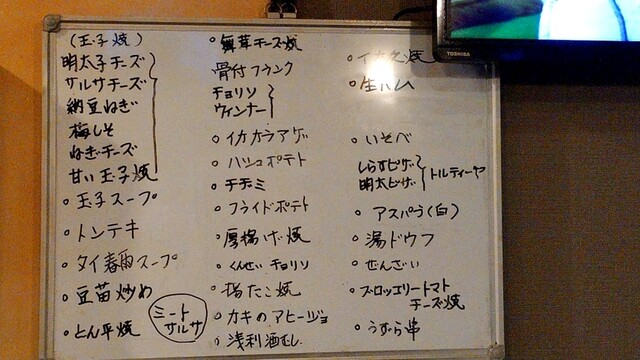 (玉子焼)
明太子チーズ
サルサチーズ
納豆ねぎ
梅しそ
ねぎチーズ
甘い玉子焼
。玉子スープ
。トンテキ
。タイ春雨スープ
。豆苗炒め
。とん平焼
ミート
サルサ
。舞茸チーズ焼
骨付フランク
チョリソ
ウィンナー
。イカカラアゲ
。ハッシュポテト
。チヂミ
。フライドポテト
。厚揚げ焼
。くんせいチョリソ
。たこ焼
。カキのアヒージョ
。浅利酒むし
。生ハム
。いそべ
しらすピザ
明太ピザ
トルティーヤ
。アスパラ(白)
。湯ドウフ
。ぜんざい
。ブロッコリートマト
チーズ焼
。うずら串
TOSHIBA